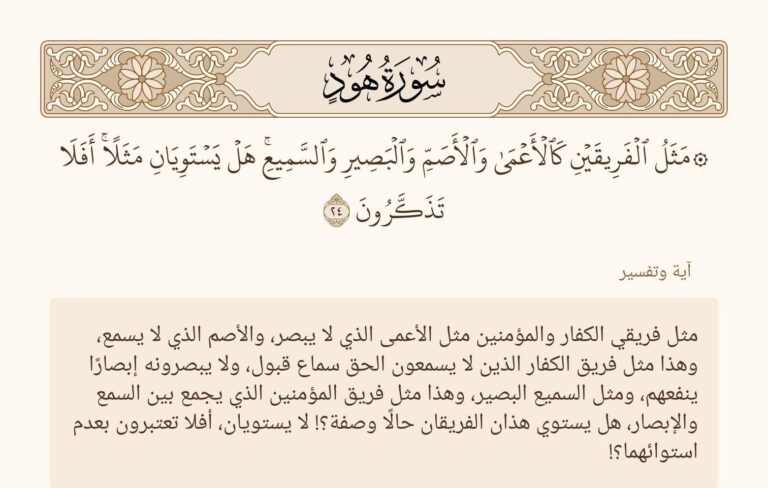 سُورَةُ هُودٍ
۞ مَثَلُ ٱلۡفَرِيقَيۡنِ كَٱلۡأَعۡمَىٰ وَٱلۡأَصَمِّ وَٱلۡبَصِيرِ وَٱلسَّمِيعِۚ هَلۡ يَسۡتَوِيَانِ مَثَلًاۚ أَفَلَا
تَذَكَّرُونَ ٢٤
آية وتفسير
مثل فريقي الكفار والمؤمنين مثل الأعمى الذي لا يبصر، والأصم الذي لا يسمع،
وهذا مثل فريق الكفار الذين لا يسمعون الحق سماع قبول، ولا يبصرونه إبصارًا
ينفعهم، ومثل السميع البصير، وهذا مثل فريق المؤمنين الذي يجمع بين السمع
والإبصار، هل يستوي هذان الفريقان حالًا وصفة؟! لا يستويان، أفلا تعتبرون بعدم
استوائهما؟!